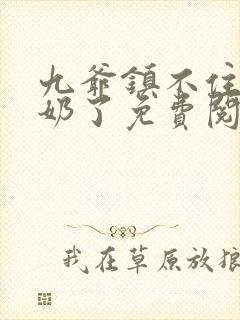 九爷镇不住
奶了免费阅
我在草原放狼